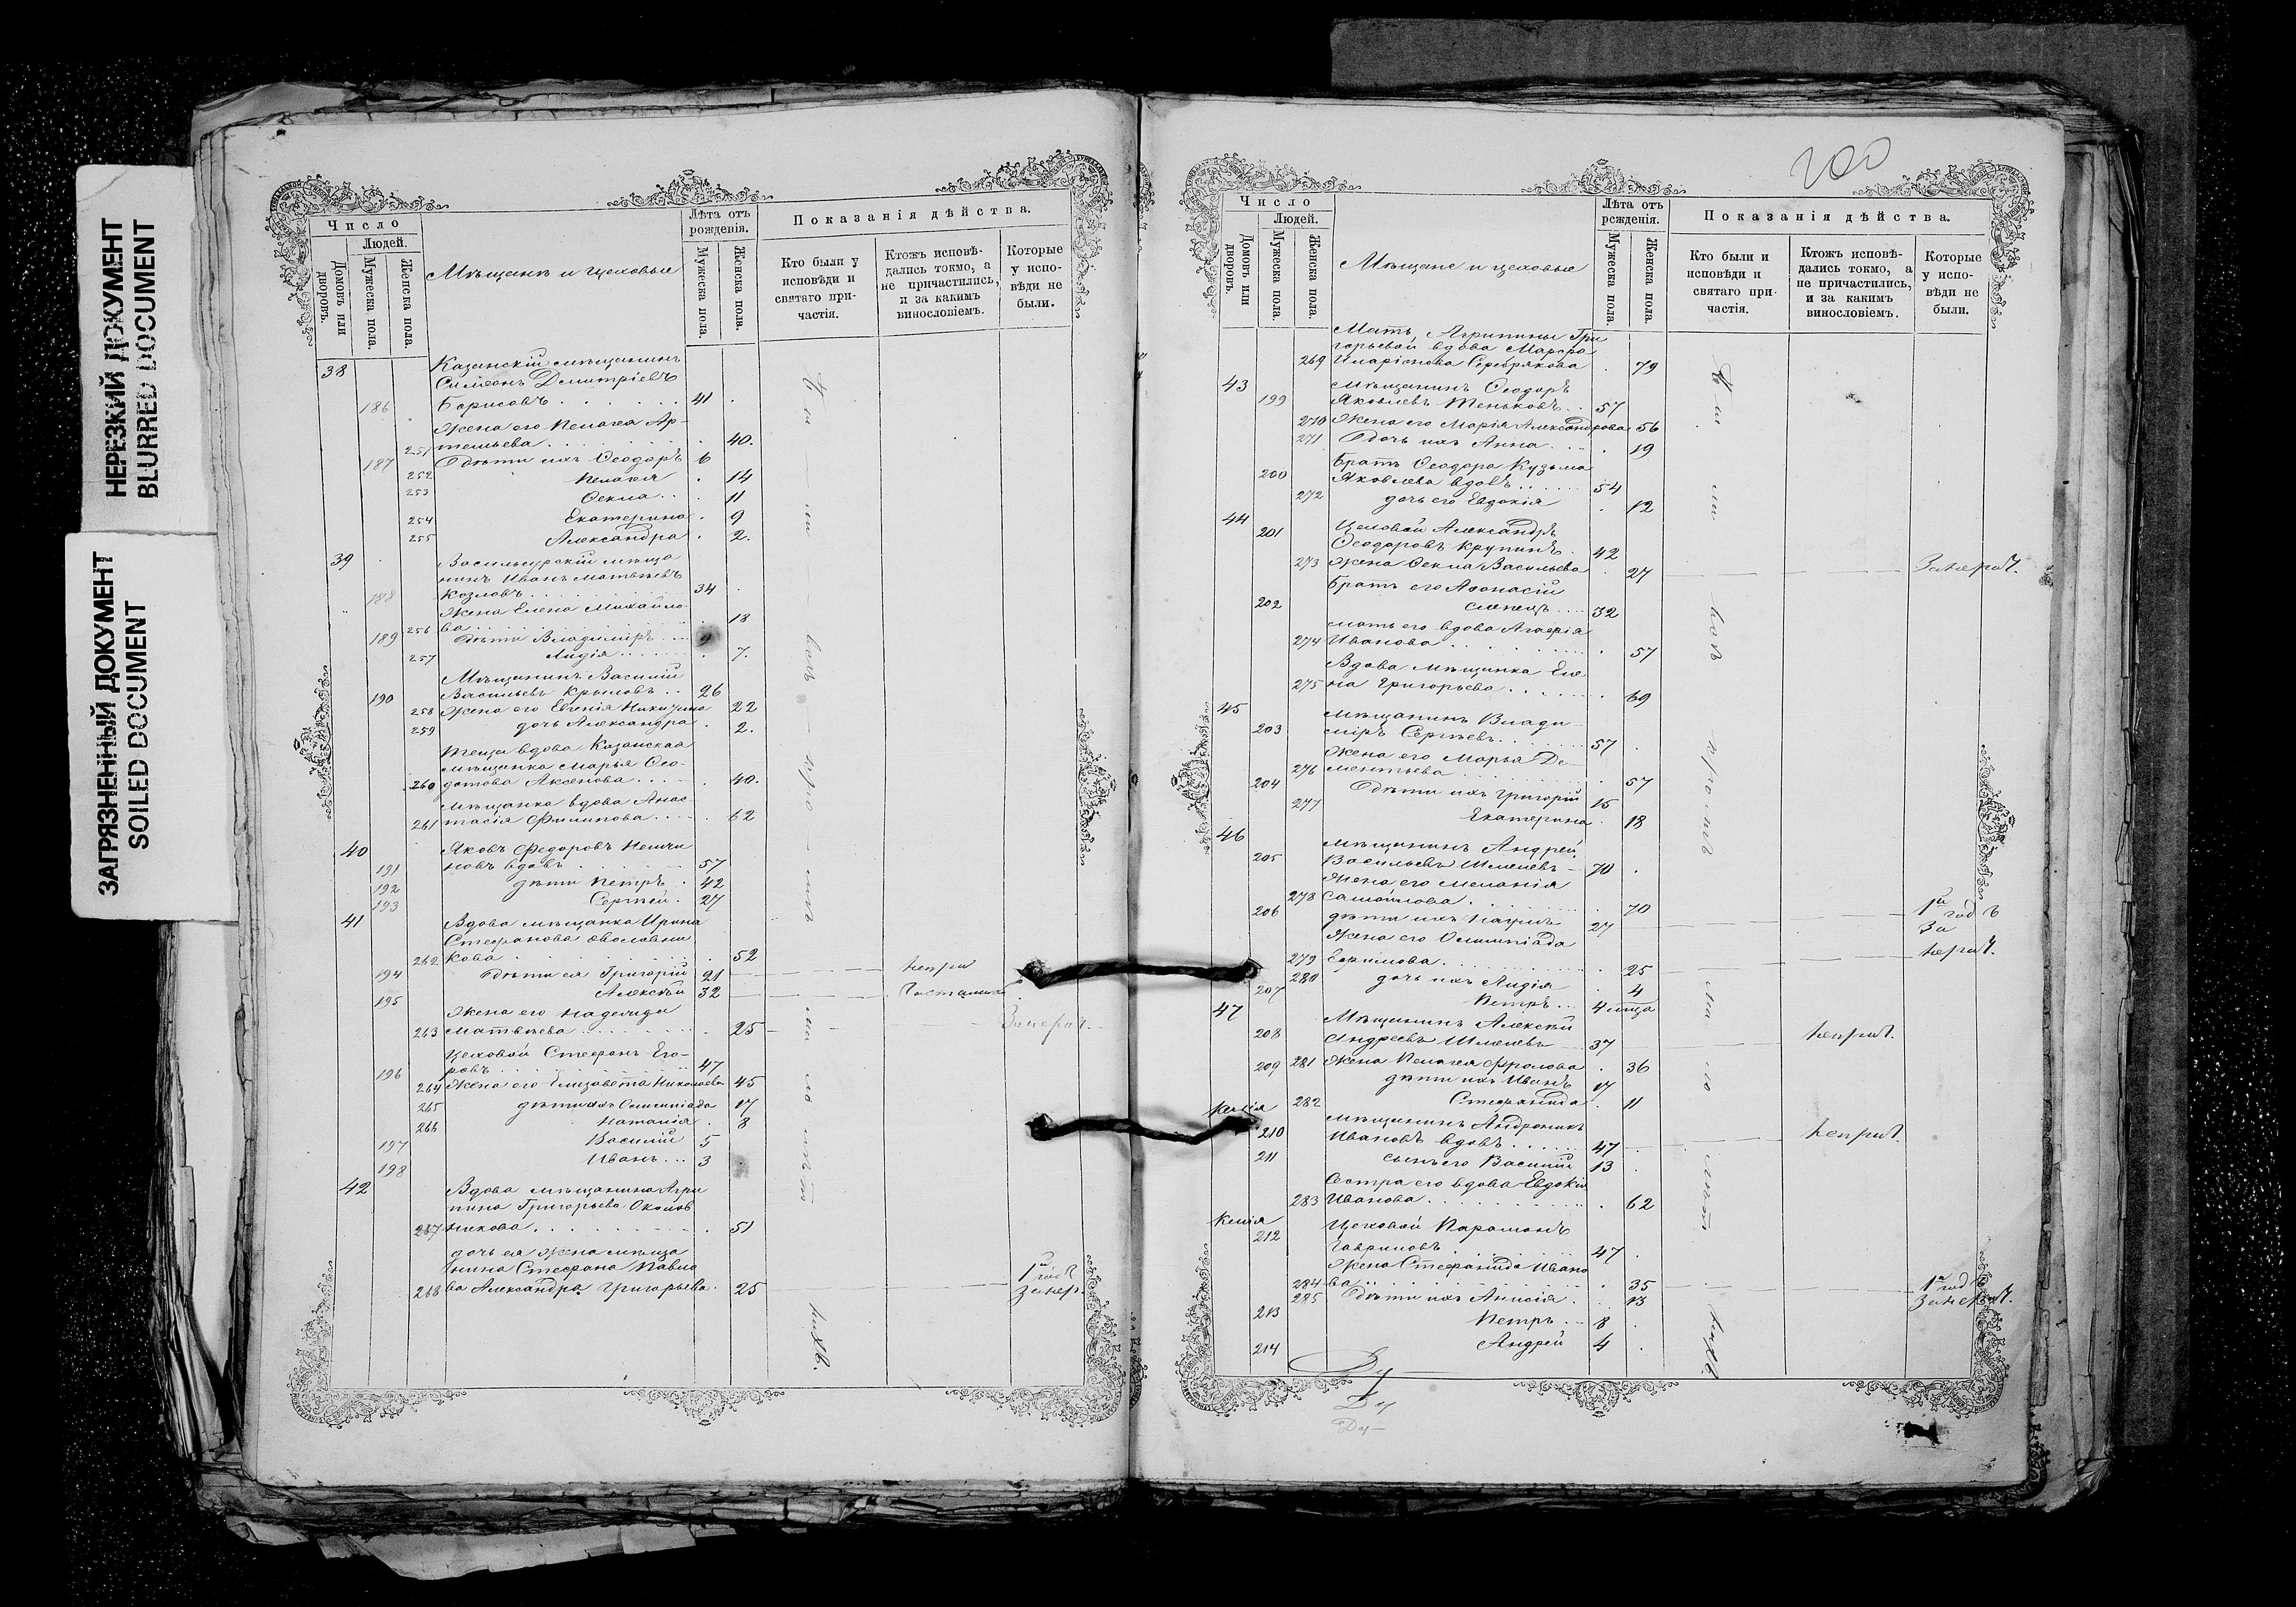 НЕРЕЗКИЙ ДОКУМЕНТ
BLURRED DOCUMENT
ЗАГРЯЗНЕННЫЙ ДОКУМЕНТ
SOILED DOCUMENT
Число
Людей.
Домовъ или дворовъ.
Мужеска пола.
Женска пола.
Мѣщане и цеховые
Лѣта отъ рожденія.
Мужеска пола.
Женска пола.
Показанія дѣйства.
Кто были у исповѣди и святаго причастія.
Ктожъ исповѣдались токмо, а не причастились, и за какимъ винословіемъ.
Которые у исповѣди не были.
38 Казанскій мѣщанинъ
Симеонъ Димитріевъ
186 Борисовъ 41
Жена его Пелагея Ар-
251 темьева 40.
187 Дѣти ихъ Ѳеодоръ 6
252 Пелагія 14
253 Ѳекла 11
254 Екатерина 9
255 Александра 2.
39 Васильсурскій мѣща
нинъ Иванъ Матвѣевъ
188 Козловъ 34
Жена Елена Михайло-
256 ва 18
189 Дѣти Владиміръ 9
257 Лидія 7.
Мѣщанинъ Василій
190 Васильевъ Крыловъ 26
258 Жена его Евгенія Никитина 22
259 дочь Александра 2.
Теща вдова Казанская
мѣщанка Марья Ѳео-
260 дотова Аксенова 40.
Мѣщанка вдова Анас-
261 тасія Филипова 62
40 Яковъ Федоровъ Немчи
191 новъ вдовъ 57
192 дѣти Петръ 42
193 Сергѣй 27
41 Вдова мѣщанка Ирина
Стефанова
262 кова 52
194 Дѣти ея Григорій 21 непри
195 Алексѣй 32
Жена его Надежда
263 Матвѣева 25
Цеховой Стефанъ Его-
196 ровъ 47
264 Жена его Елизавета Николаева 45
265 дѣти ихъ Олимпіада 17
266 Наталія 8
197 Василій 5
198 Иванъ 3
42 Вдова мѣщанина Агри
пина Григорьева
267 никова 51
дочь ея жена мѣща
нина Стефана Павло
268 ва Александра Григорьева 25 1й годъ
200
Число
Людей.
Домовъ или дворовъ.
Мужеска пола.
Женска пола.
Мѣщане и цеховые
Лѣта отъ рожденія.
Мужеска пола.
Женска пола.
Показанія дѣйства.
Кто были и исповѣди и святаго причастія.
Ктожъ исповѣдались токмо, а не причастились, и за какимъ винословіемъ.
Которые у исповѣди не были.
Мать, Агрипины Гри
горьевой вдова Марфа
269 Иларіонова Серебрякова 79
43 Мѣщанинъ Ѳеодоръ
199 Яковлевъ Теньковъ 57
270 Жена его Марія Александрова 56
271 Дочь ихъ Анна 19
Братъ Ѳеодора Кузьма
200 Яковлевъ вдовъ 54
272 дочь его Евдокія 12
44 Цеховой Александръ
201 Ѳеодоровъ Крупинъ 42
273 Жена Ѳекла Васильева 27
Братъ его Аѳонасій
202 слѣпецъ 32
мать его вдова Агафія
274 Иванова 57
Вдова мѣщанка Еле
275 на Григорьева 69
45 Мѣщанинъ Влади
203 міръ Сергѣевъ 57
Жена его Марья Де
276 ментьева 57
204 Дѣти ихъ Григорій 15
277 Екатерина 18
46 Мѣщанинъ Андрей
205 Васильевъ Шмелевъ 70
Жена его Меланія
278 Самойлова 70
206 дѣти ихъ Наумъ 27 1й годъ
Жена его Олимпіада За
279 Ефимова 25
280 дочь ихъ Лидія 4
207 Петръ 4 мца
47 Мѣщанинъ Алексѣй
208 Андреевъ Шмелевъ 37 неприч.
281 Жена Пелагея Фролова 36
209 дѣти ихъ Иванъ 17
282 Стефанида 11
Келія Мѣщанинъ Андроникъ
210 Ивановъ вдовъ 47 неприч.
211 сынъ его Василій 13
Сестра его вдова Евдокія
283 Иванова 62
Келія Цеховой Парамонъ
212 Гавриловъ 47
Жена Стефанида Ивано
284 ва 35 1й годъ
285 Дѣти ихъ Анисія 13
213 Петръ 8
214 Андрей 4
Ду
Ду
Ду-